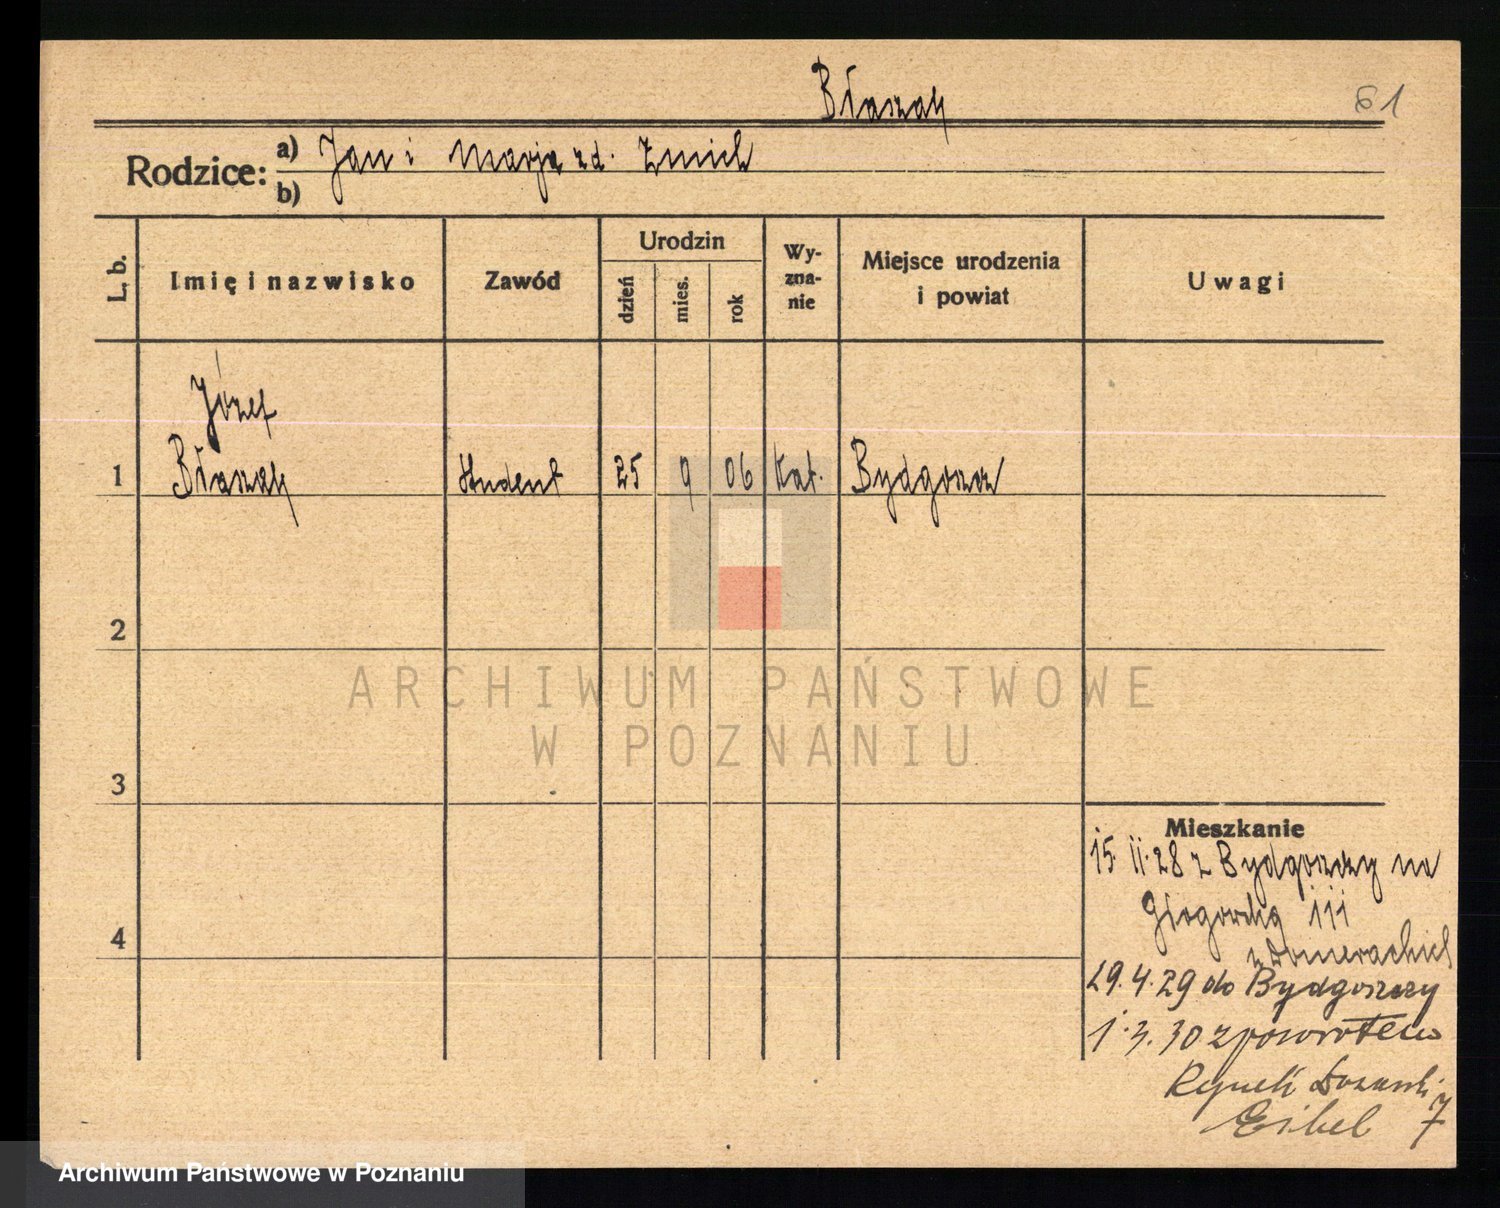 Błaszak
61
Rodzice: a) Jan i Marja zd. Zmich
b)
L. b.
Imię i nazwisko
Zawód
Urodzin
dzień
mies.
rok
Wy-
zna-
nie
Miejsce urodzenia
i powiat
Uwagi
Józef
1 Błaszak student 25 9 06 kat. Bydgoszcz
2
3
4
Mieszkanie
15 11.28 z Bydgoszczy na
Głogowską 111
29.4.29 do Bydgoszczy
1.3.30 z powrotem
Rynek Łazarski
7
ARCHIWUM PAŃSTWOWE
W POZNANIU
Archiwum Państwowe w Poznaniu